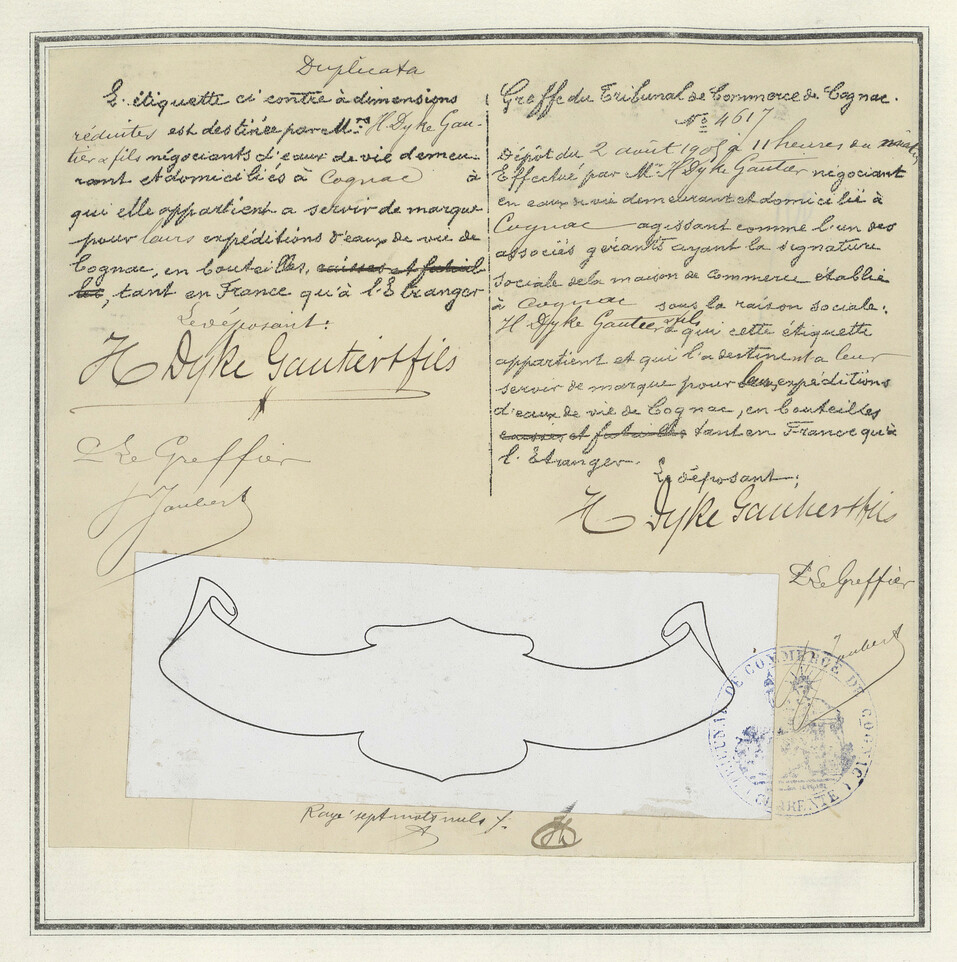 Duplicata
L'étiquette ci contre à dimensions
réduites est destinée par M.rs H Dyke Gau-
tier & fils négociants d'eaux de vie demeu-
rant et domiciliés à Cognac à
qui elle appartient a servir de marque
pour leurs expéditions d'eaux de vie de
Cognac, en bouteilles, caisses et futail
les, tant en France qu'à l'Etranger
Le déposant:
H Dyke Gautier & fils
Le Greffier
Joubert
Greffe du Tribunal de Commerce de Cognac.
No 4617
Dépôt du 2 août 1905 à 11 heures du matin
Effectué par Mr H Dyke Gautier négociant
en eaux de vie demeurant et domicilié à
Cognac agissant comme l'un des
associés gérants ayant la signature
sociale de la maison de commerce établie
à Cognac sous la raison sociale:
H Dyke Gautier & fils à qui cette étiquette
appartient et qui l'a destinent a leur
servir de marque pour leurs expéditions
d'eaux de vie de Cognac, en bouteilles
caisses et futailles tant en France qu'à
l'Etranger.
Le déposant;
H Dyke Gautier & fils
Le Greffier
Joubert
TRIBUNAL DE COMMERCE DE COGNAC
(CHARENTE)
Rayé sept mots nuls